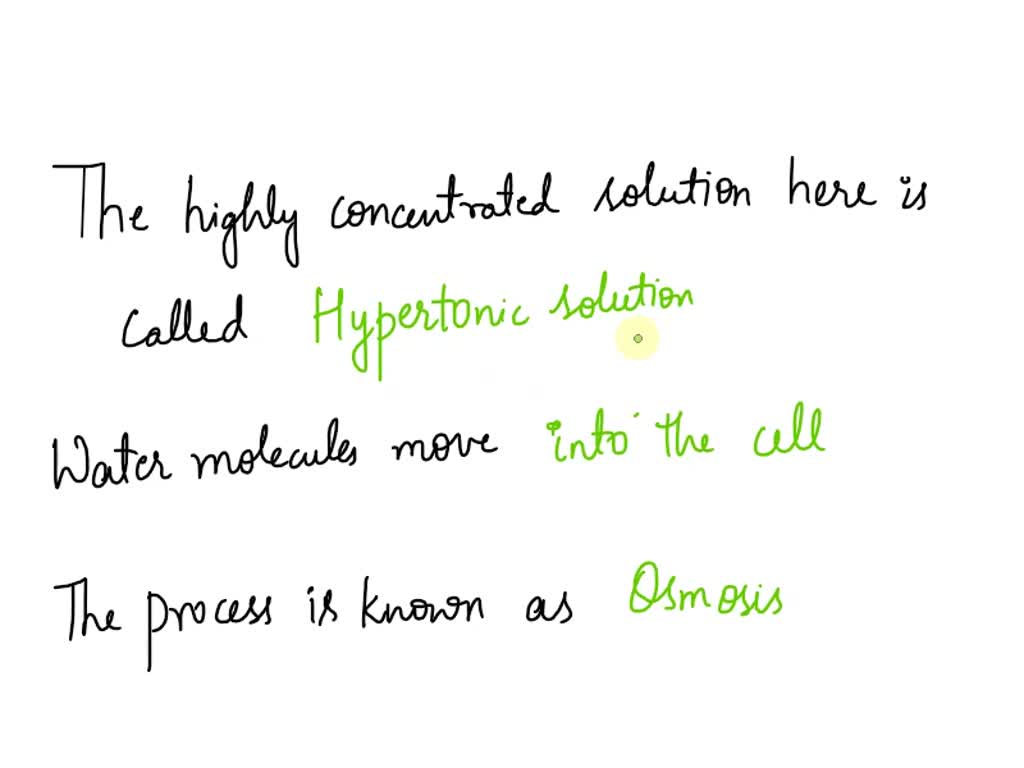 The highly concentrated solution here is
called Hypertonic solution
Water molecules move into the cell
The process is known as Osmosis